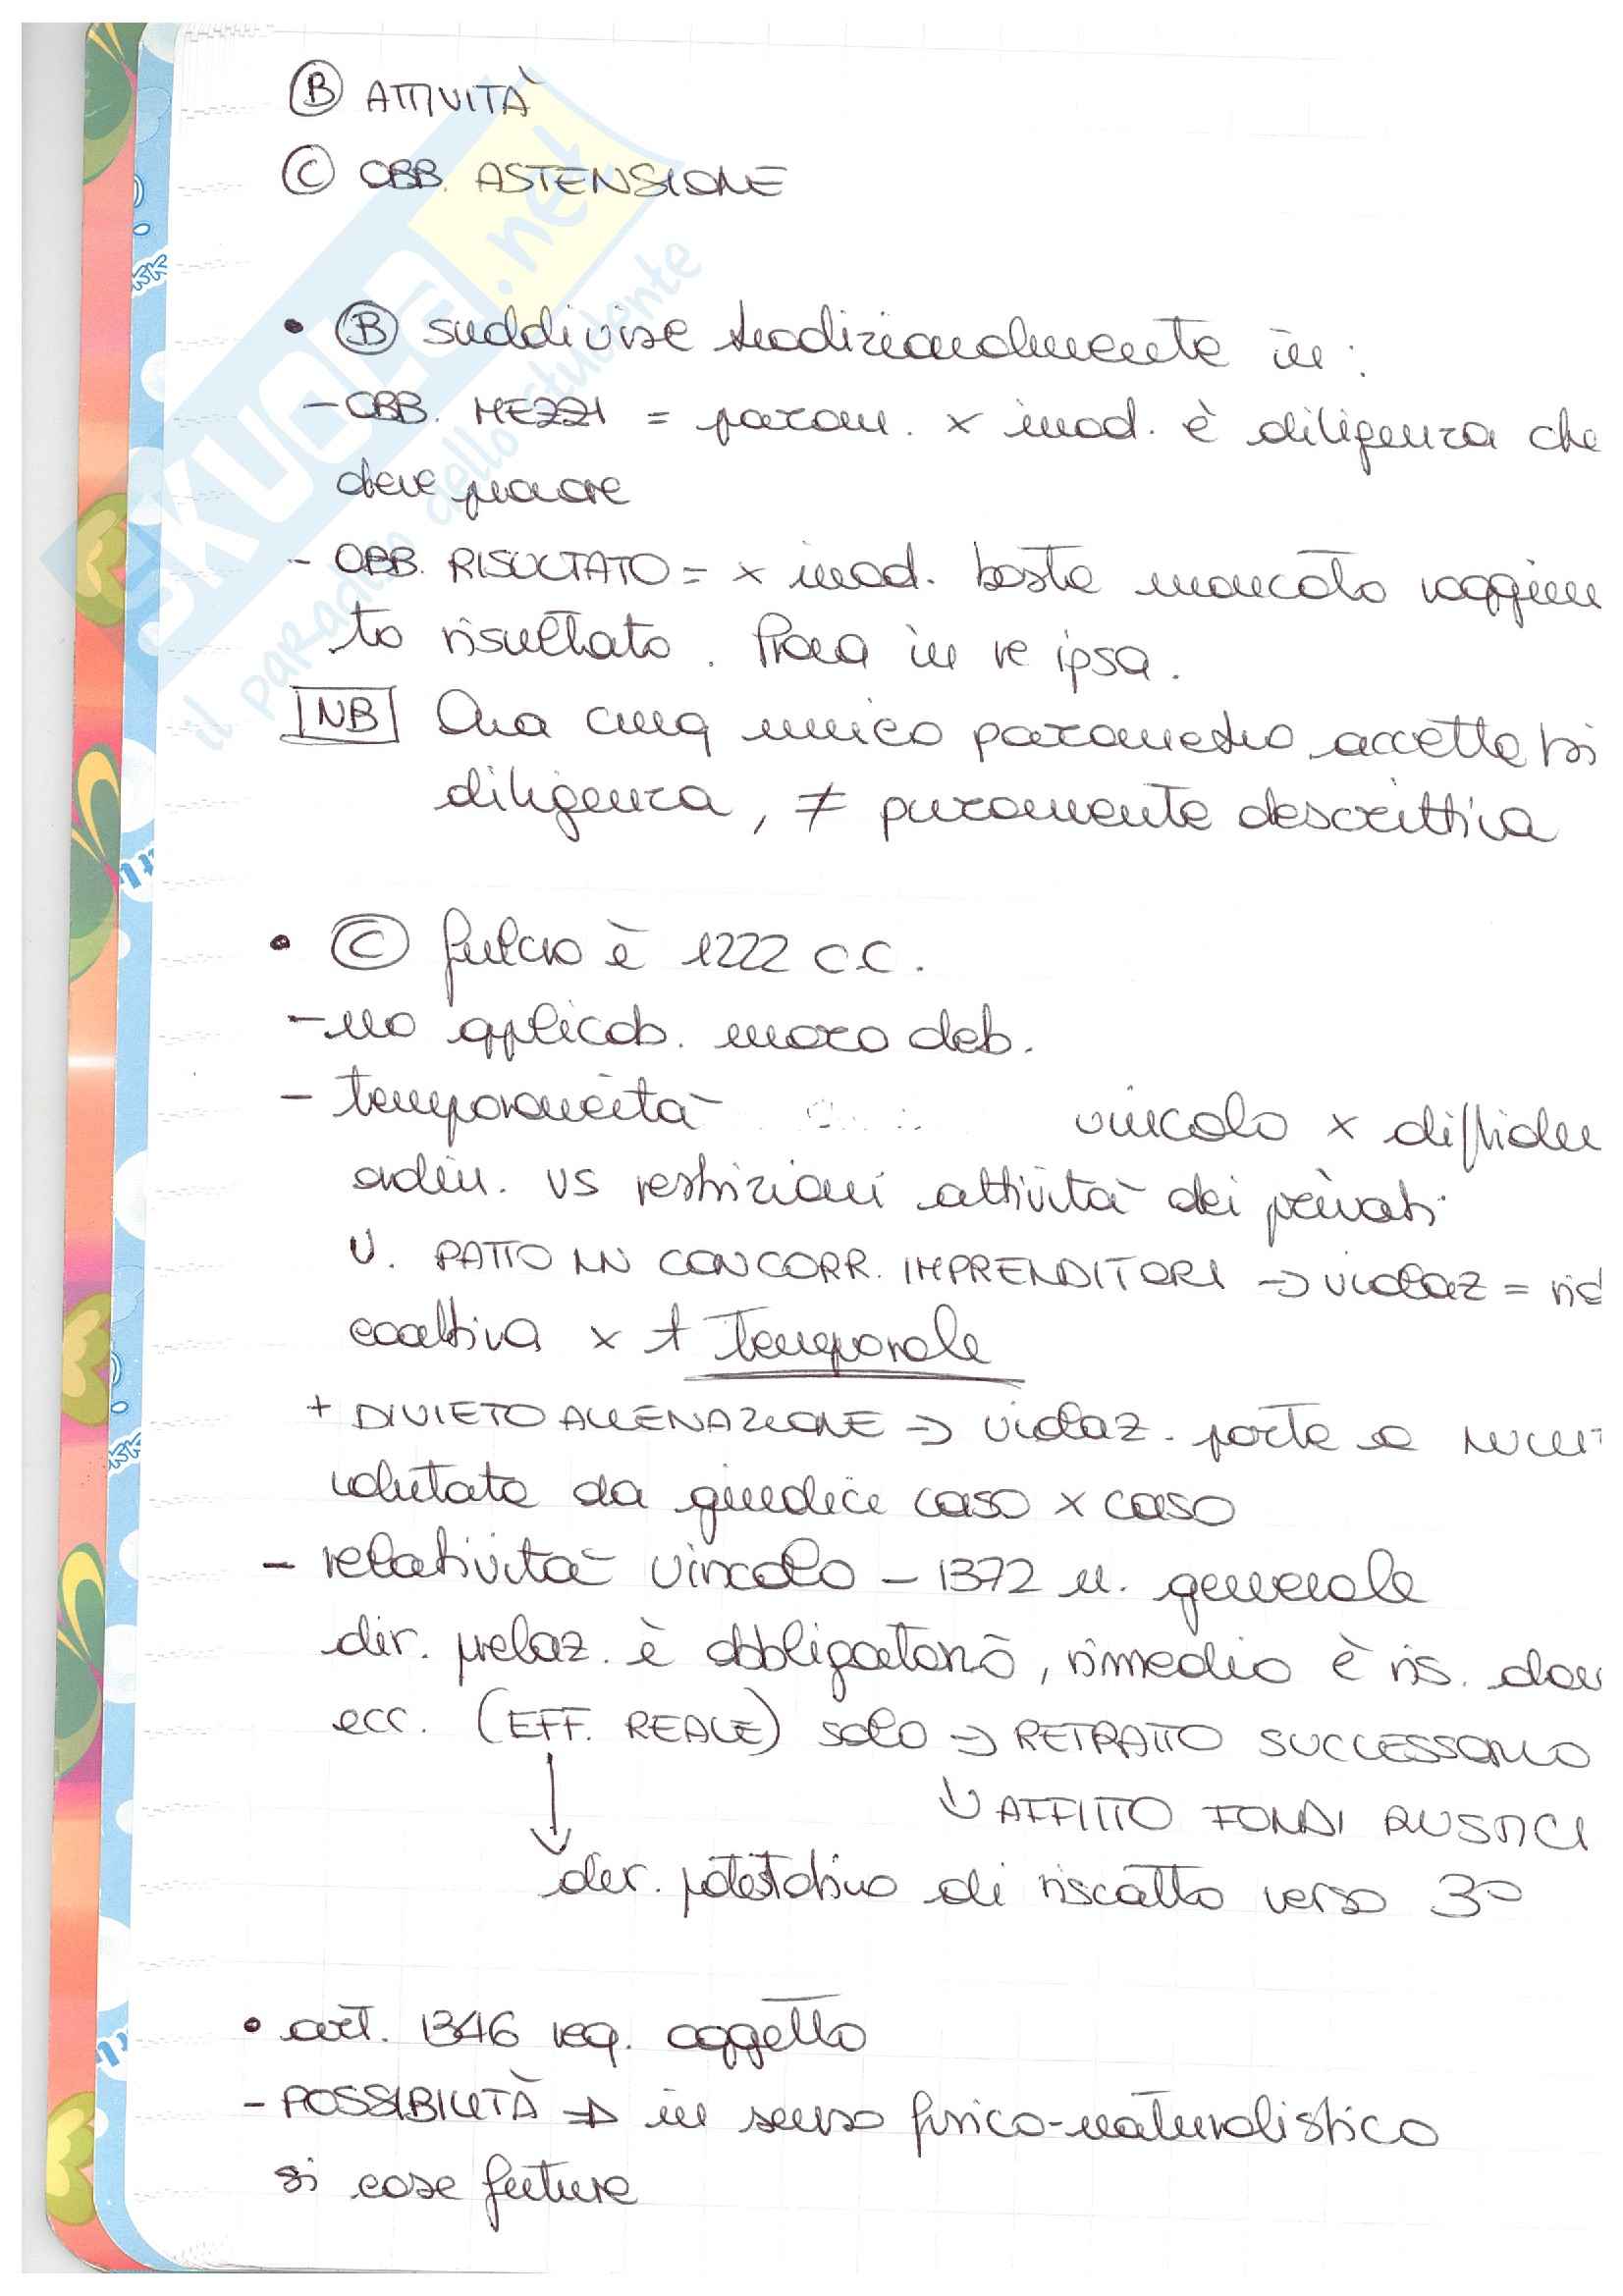 Ⓑ ATTIVITÀ
Ⓒ OBB. ASTENSIONE
• Ⓑ suddivise tradizionalmente in:
- OBB. MEZZI = param. x inad. è diligenza che
deve provare
- OBB. RISULTATO = x inad. basta mancato raggium
to risultato. Prova in re ipsa.
NB Ora cmq unico parametro accettabi
diligenza, ≠ puramente descrittiva
• Ⓒ fulcro è 1222 c.c.
- no applicab. mora deb.
- temporaneità vincolo x
ordin. vs restrizioni attività dei privati
V. PATTO NN CONCORR. IMPRENDITORI → violaz =
x t temporale
+ DIVIETO ALIENAZIONE → violaz. porta a
valutata da giudice caso x caso
- relatività vincolo - 1372 n. generale
dir. prelaz. è obbligatorio, rimedio è ris. dan
ecc. (EFF. REALE) solo → RETRATTO SUCCESSORIO
↳ AFFITTO FONDI RUSTICI
↓
dir. potestativo di riscatto verso 3º
• art. 1346 req. oggetto
- POSSIBILITÀ → in senso fisico-naturalistico
si cose future
SKUOLA.net
il paradiso dello studente